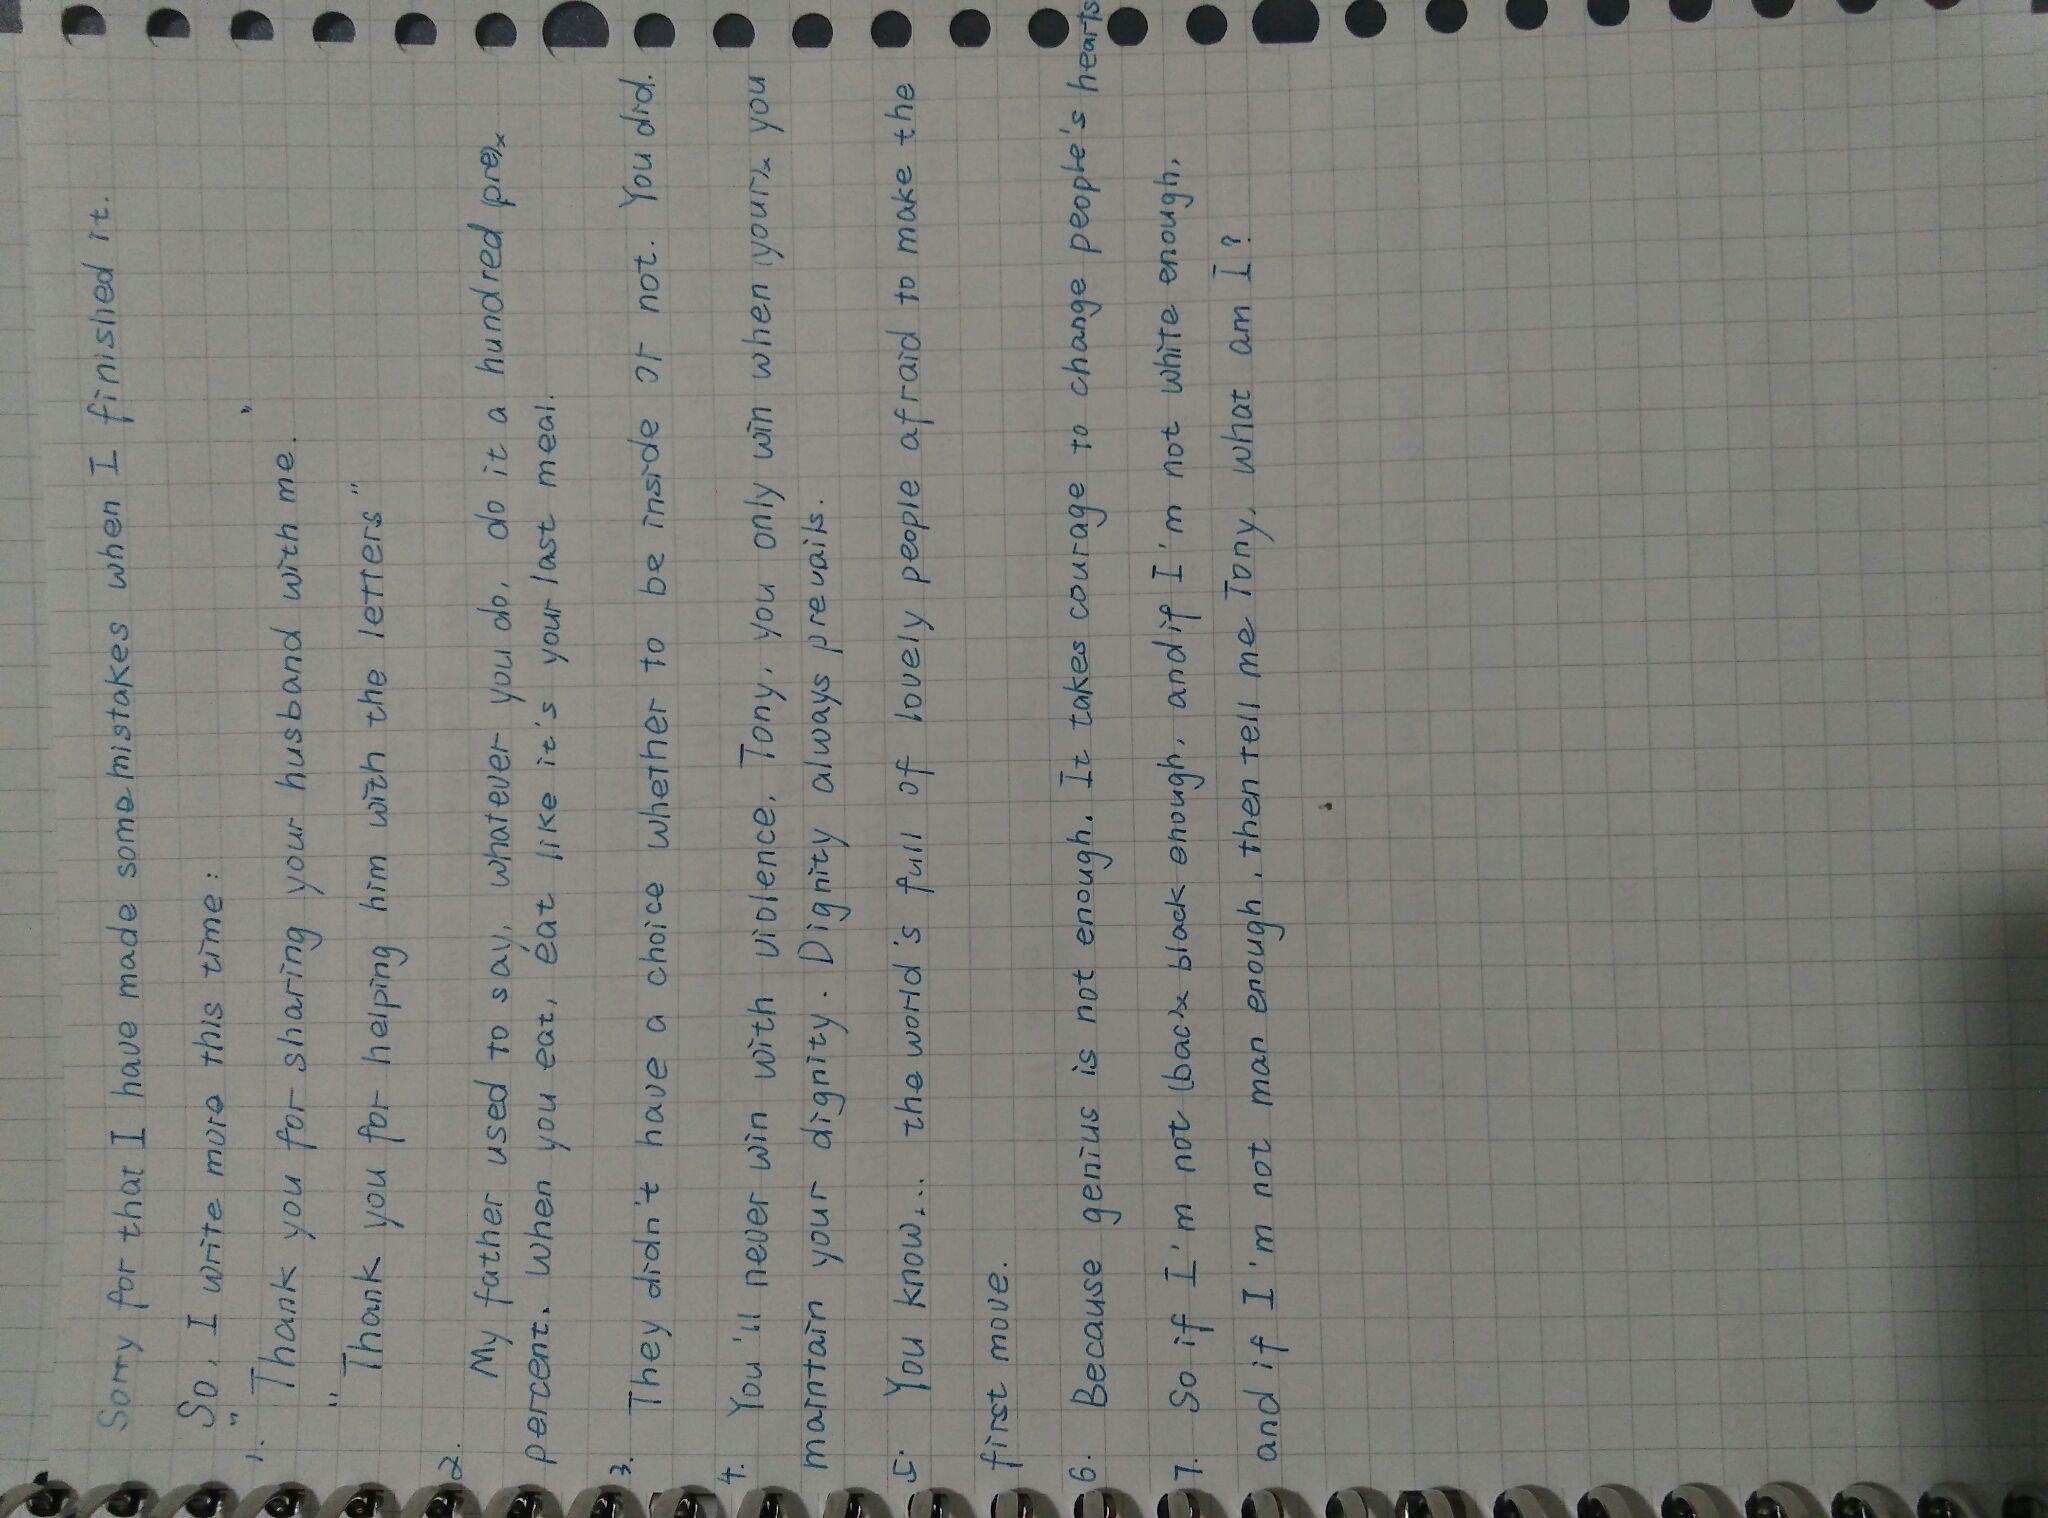 Sorry for that I have made some mistakes when I finished it.
So, I write more this time:
1. "Thank you for sharing your husband with me."
"Thank you for helping him with the letters"
2. My father used to say, whatever you do, do it a hundred
percent. When you eat, eat like it's your last meal.
3. They didn't have a choice whether to be inside or not. You did.
4. You'll never win with violence, Tony, you only win when you
maintain your dignity. Dignity always prevails.
5. You know... the world's full of lovely people afraid to make the
first move.
6. Because genius is not enough. It takes courage to change people's hearts
7. So if I'm not black enough, and if I'm not white enough,
and if I'm not man enough, then tell me Tony, what am I?